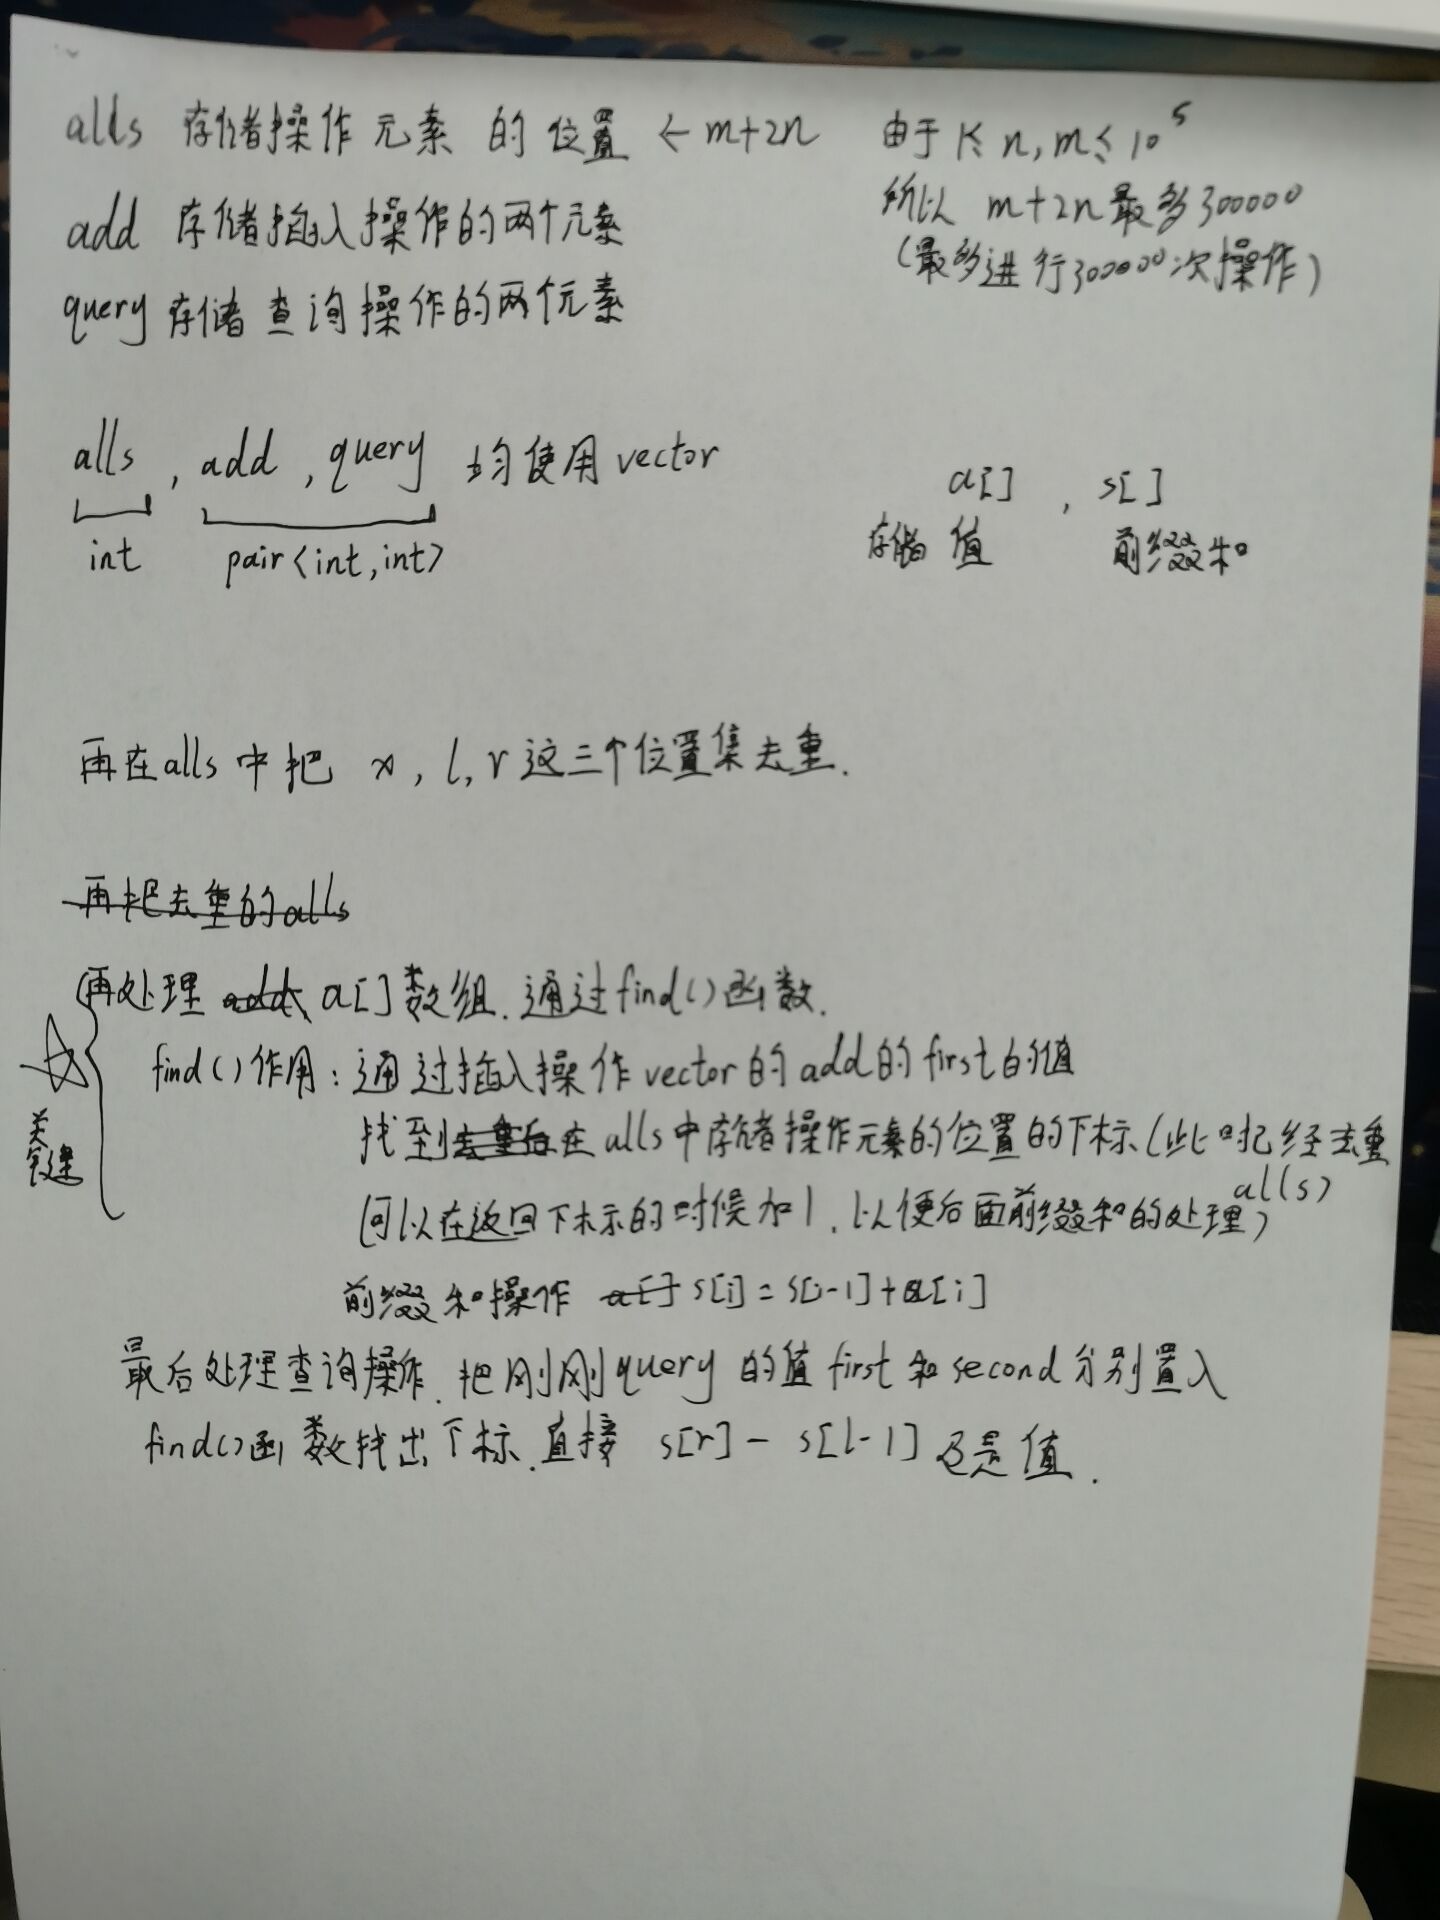 alls 存储操作元素 的 位置 ← m+2n
由于 1≤ n, m≤ 10^5
所以 m+2n最多300000
(最多进行300000次操作)
add 存储插入操作的两个元素
query 存储 查询操作的两个元素
alls , add , query 均使用 vector
int pair<int,int>
a[] , s[]
存储 值 前缀和
再在alls 中把 x, l, r 这三个位置集去重.
再把去重的alls
再处理 add、a[]数组. 通过find()函数.
关键
find()作用: 通过插入操作vector的add的first的值
找到去重后在 alls中存储操作元素的位置的下标(此时已经去重
alls)
(可以在返回下标的时候加1, 以便后面前缀和的处理)
前缀和操作 a[] s[i] = s[i-1]+a[i]
最后处理查询操作. 把刚刚query 的值 first 和 second 分别置入
find()函数找出下标. 直接 s[r] - s[l-1] 是值.